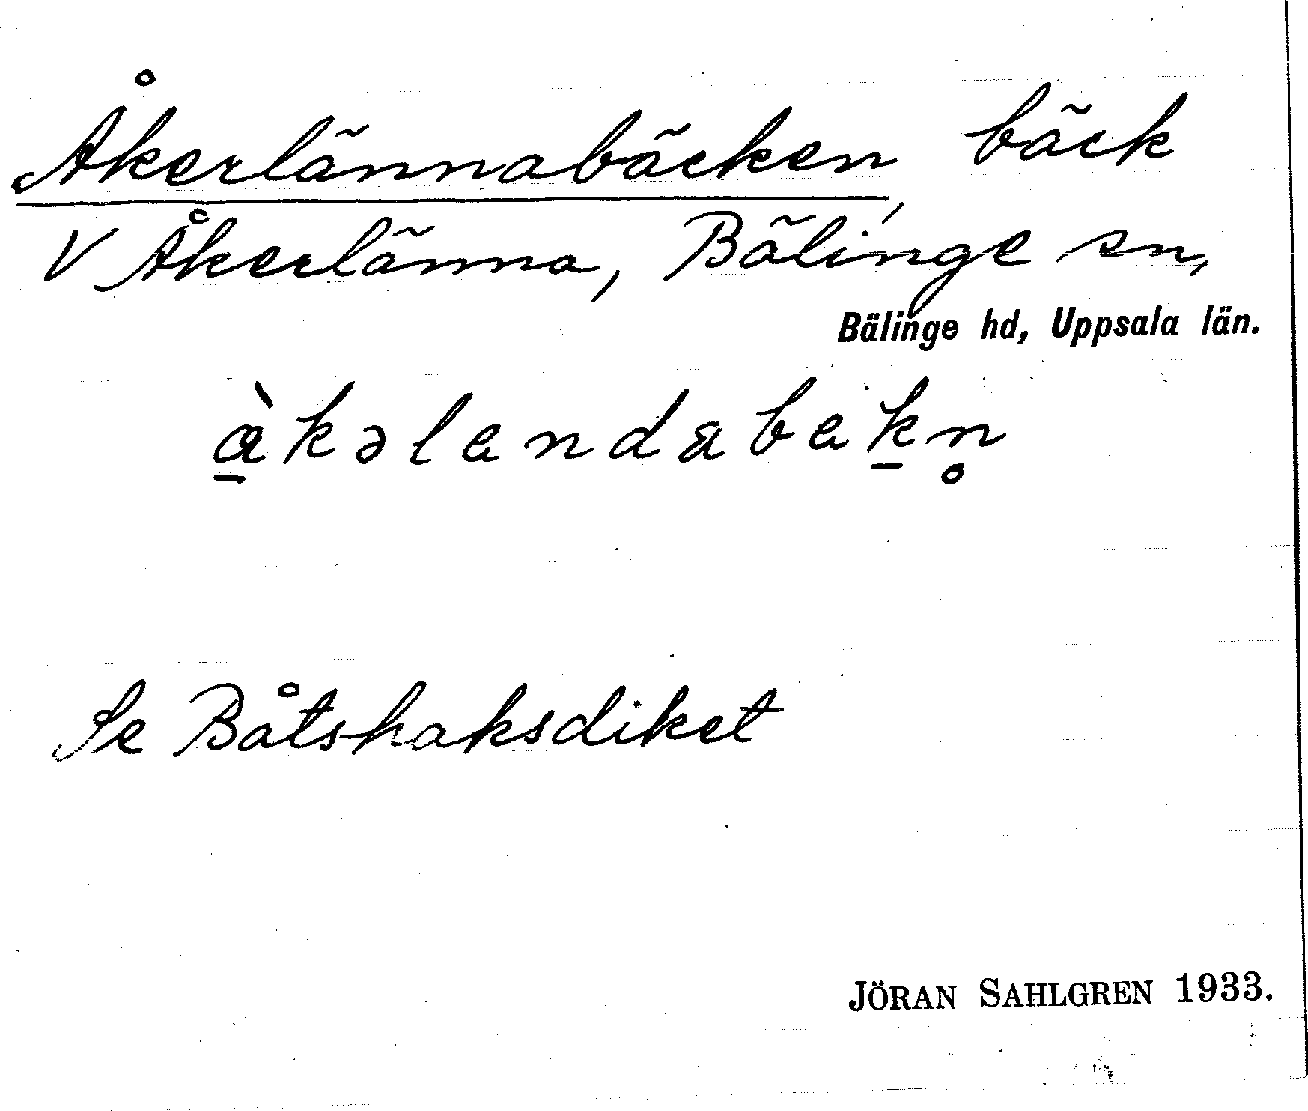 Åkerlännabäcken, bäck
V Åkerlänna, Bälinge sn,
Bälinge hd, Uppsala län.
Se Båtshaksdiket
JÖRAN SAHLGREN 1933.